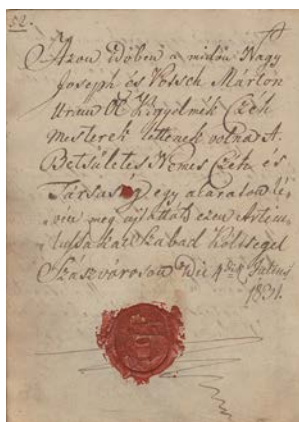 52.
Azon Időben a midőn Nagy
Joseph és Vossch Márton
Uraim Ő Kigyelmék Czéh
mesterek lettenek volna A
Betsületes Nemes Czéh és
Társaság egy akaraton lé-
vén meg ujjittották ezen Artiku-
lussakat Szabad Költségel
Szászvároson Die 4dik Julius
1831.